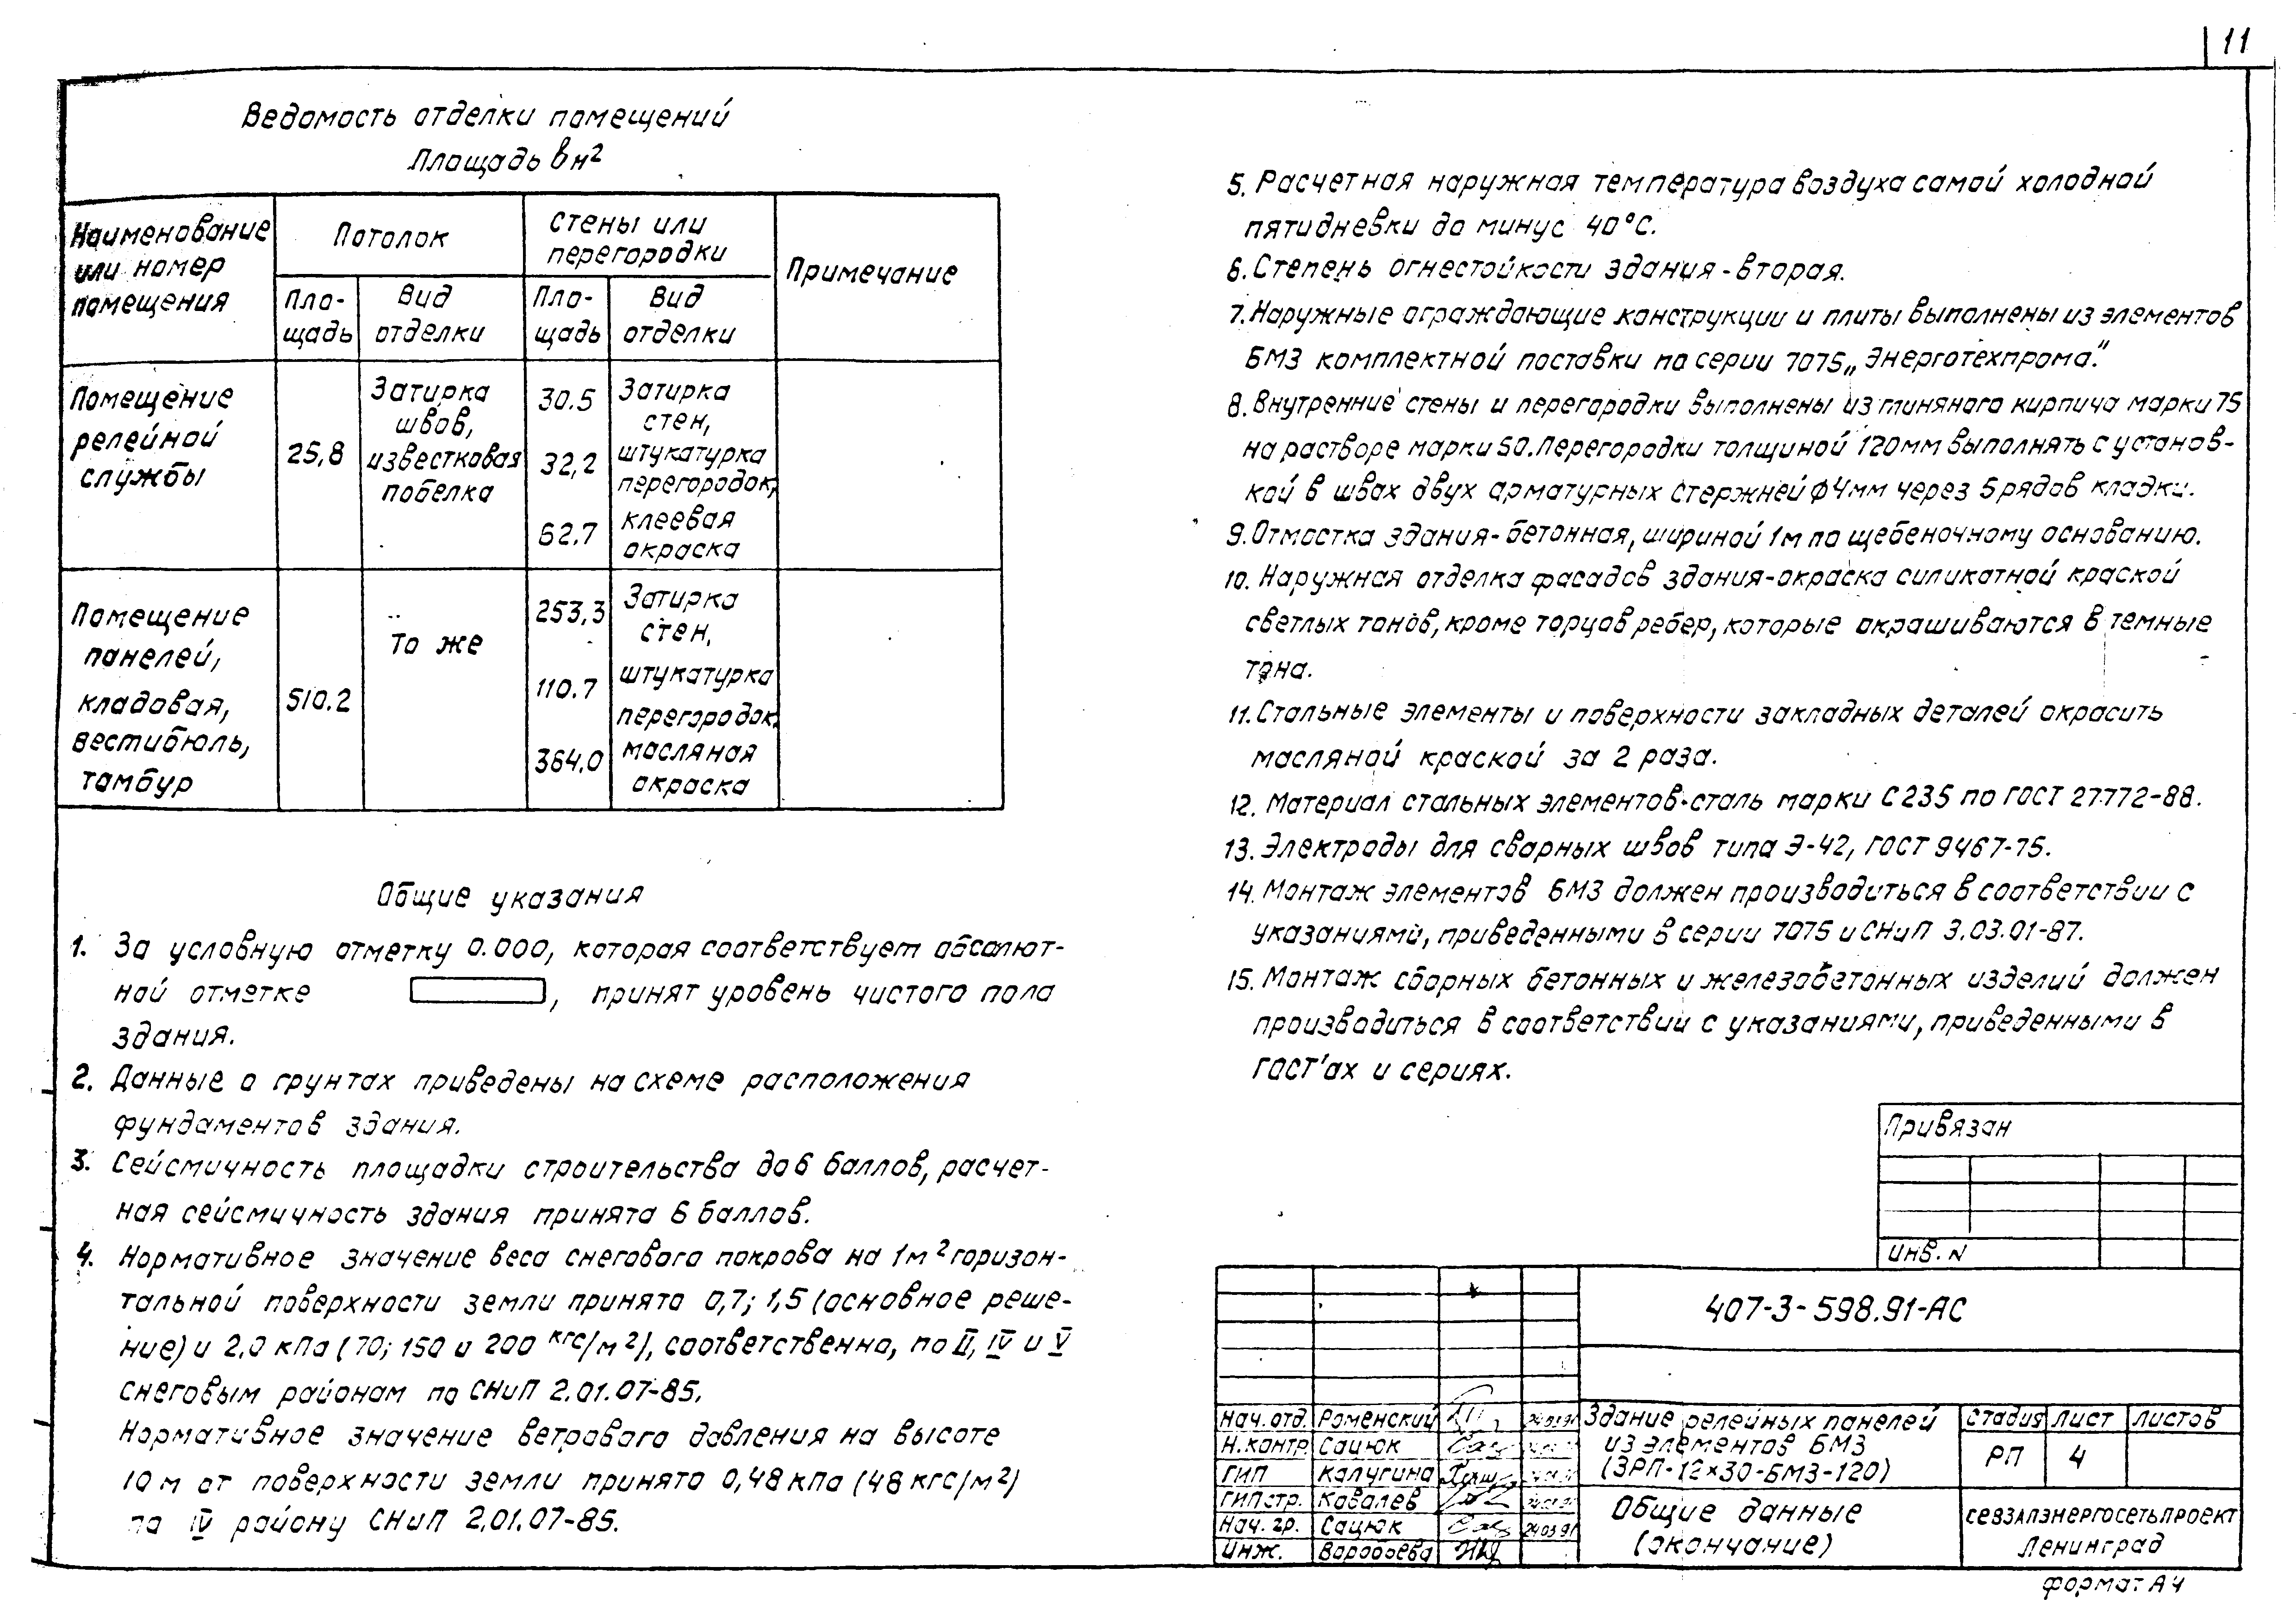 11
Ведомость отделки помещений
Площадь в м²
Наименование или номер помещения
Потолок
Стены или перегородки
Примечание
Пло-
щадь
Вид
отделки
Пло-
щадь
Вид
отделки
Помещение
релейной
службы
25,8
Затирка
швов,
известковая
побелка
30.5
Затирка
стен,
32,2
штукатурка
перегородок,
62.7
клеевая
окраска
Помещение
панелей,
кладовая,
вестибюль,
тамбур
510.2
То же
253,3
Затирка
стен,
110.7
штукатурка
перегородок,
364,0
масляная
окраска
Общие указания
1. За условную отметку 0.000, которая соответствует абсолют-
ной отметке , принят уровень чистого пола
здания.
2. Данные о грунтах приведены на схеме расположения
фундаментов здания.
3. Сейсмичность площадки строительства до 6 баллов, расчет-
ная сейсмичность здания принята 6 баллов.
4. Нормативное значение веса снегового покрова на 1м² горизон-
тальной поверхности земли принято 0,7; 1,5 (основное реше-
ние) и 2,0 кПа (70; 150 и 200 кгс/м²), соответственно, по II, IV и V
снеговым районам по СНиП 2.01.07-85.
Нормативное значение ветрового давления на высоте
10 м от поверхности земли принято 0,48 кПа (48 кгс/м²)
по IV району СНиП 2.01.07-85.
5. Расчетная наружная температура воздуха самой холодной
пятидневки до минус 40°С.
6. Степень огнестойкости здания - вторая.
7. Наружные ограждающие конструкции и плиты выполнены из элементов
БМЗ комплектной поставки по серии 7075 „Энерготехпрома".
8. Внутренние стены и перегородки выполнены из глиняного кирпича марки 75
на растворе марки 50. Перегородки толщиной 120мм выполнять с установ-
кой в швах двух арматурных стержней ф4мм через 5 рядов кладки.
9. Отмостка здания - бетонная, шириной 1м по щебеночному основанию.
10. Наружная отделка фасадов здания - окраска силикатной краской
светлых тонов, кроме торцов ребер, которые окрашиваются в темные
тона.
11. Стальные элементы и поверхности закладных деталей окрасить
масляной краской за 2 раза.
12. Материал стальных элементов - сталь марки С 235 по ГОСТ 27772-88.
13. Электроды для сварных швов типа Э-42, ГОСТ 9467-75.
14. Монтаж элементов БМЗ должен производиться в соответствии с
указаниями, приведенными в серии 7075 и СНиП 3.03.01-87.
15. Монтаж сборных бетонных и железобетонных изделий должен
производиться в соответствии с указаниями, приведенными в
ГОСТ'ах и сериях.
Привязан
Инв. N
407-3-598.91-АС
Нач. отд. Роменский 24.03.91
Н.контр. Сацюк
ГИП Калугина
ГИП стр. Ковалев
Нач. гр. Сацюк 24.03.91
Инж. Воробьева
Здание релейных панелей
из элементов БМЗ
(ЗРП-12×30-БМЗ-120)
Стадия Лист Листов
РП 4
Общие данные
(окончание)
СЕВЗАПЭНЕРГОСЕТЬПРОЕКТ
Ленинград
формат А4